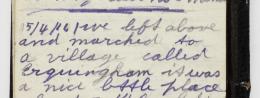 15/4/16 we left above
and marched to
a village called
Erquingham it was
a nice little place